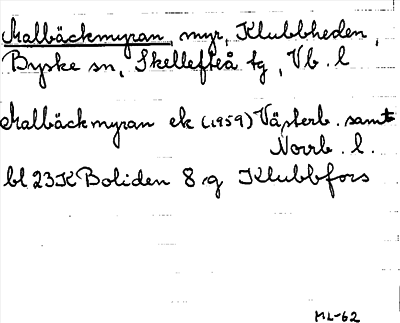 Malbäckmyran, myr, Klubbheden,
Byske sn, Skellefteå tg, Vb. l
Malbäckmyran ek (1959) Västerb. samt
Norrb. l.
bl 23K Boliden 8 g Klubbfors
ML-62